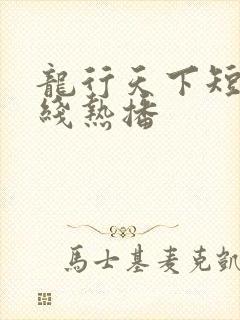 龍行天下短
綫熱播
馬士基麦克凱